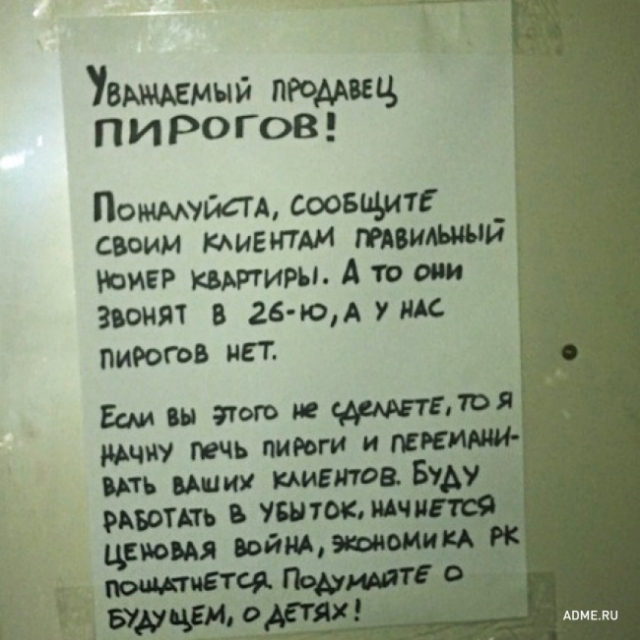 Уважаемый продавец
ПИРОГОВ!
Пожалуйста, сообщите
своим клиентам правильный
номер квартиры. А то они
звонят в 26-ю, а у нас
пирогов нет.
Если вы этого не сделаете, то я
начну печь пироги и перемани-
вать ваших клиентов. Буду
работать в убыток, начнется
ценовая война, экономика РК
пошатнется. Подумайте о
будущем, о детях!
ADME.RU